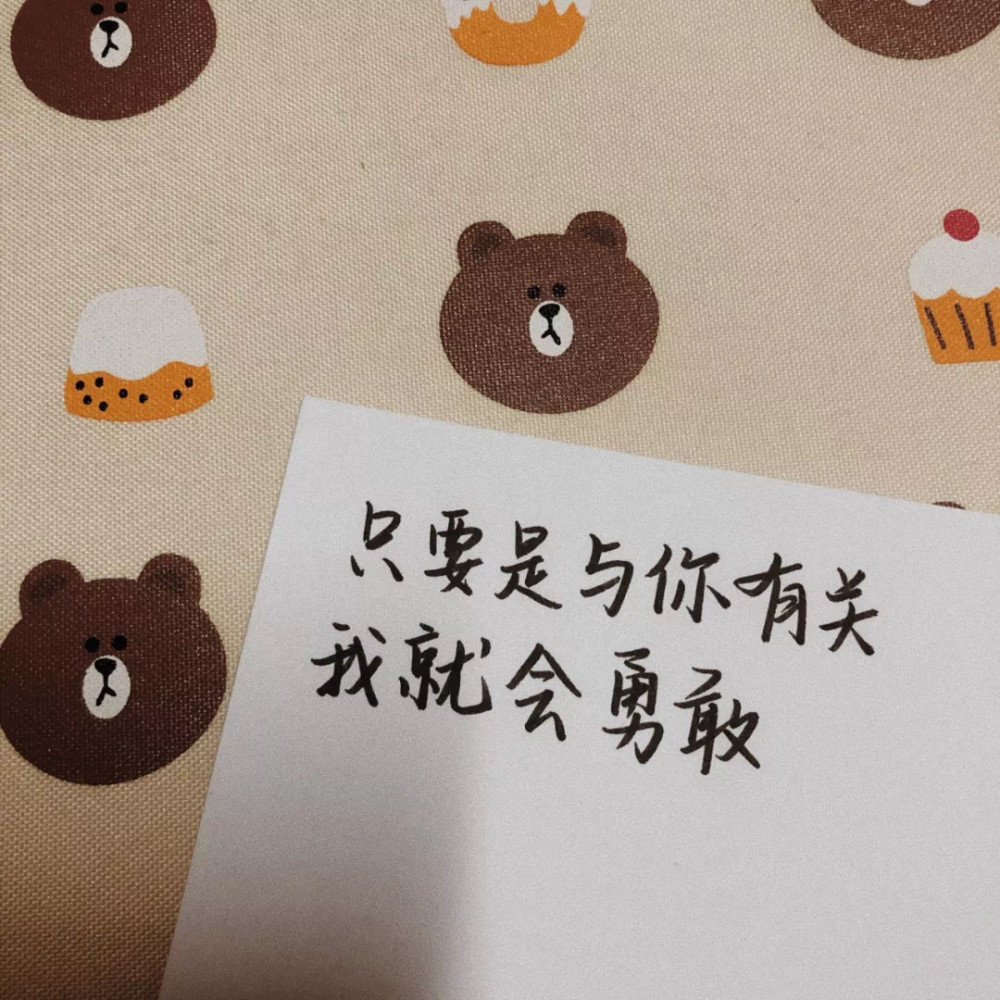 只要是与你有关
我就会勇敢